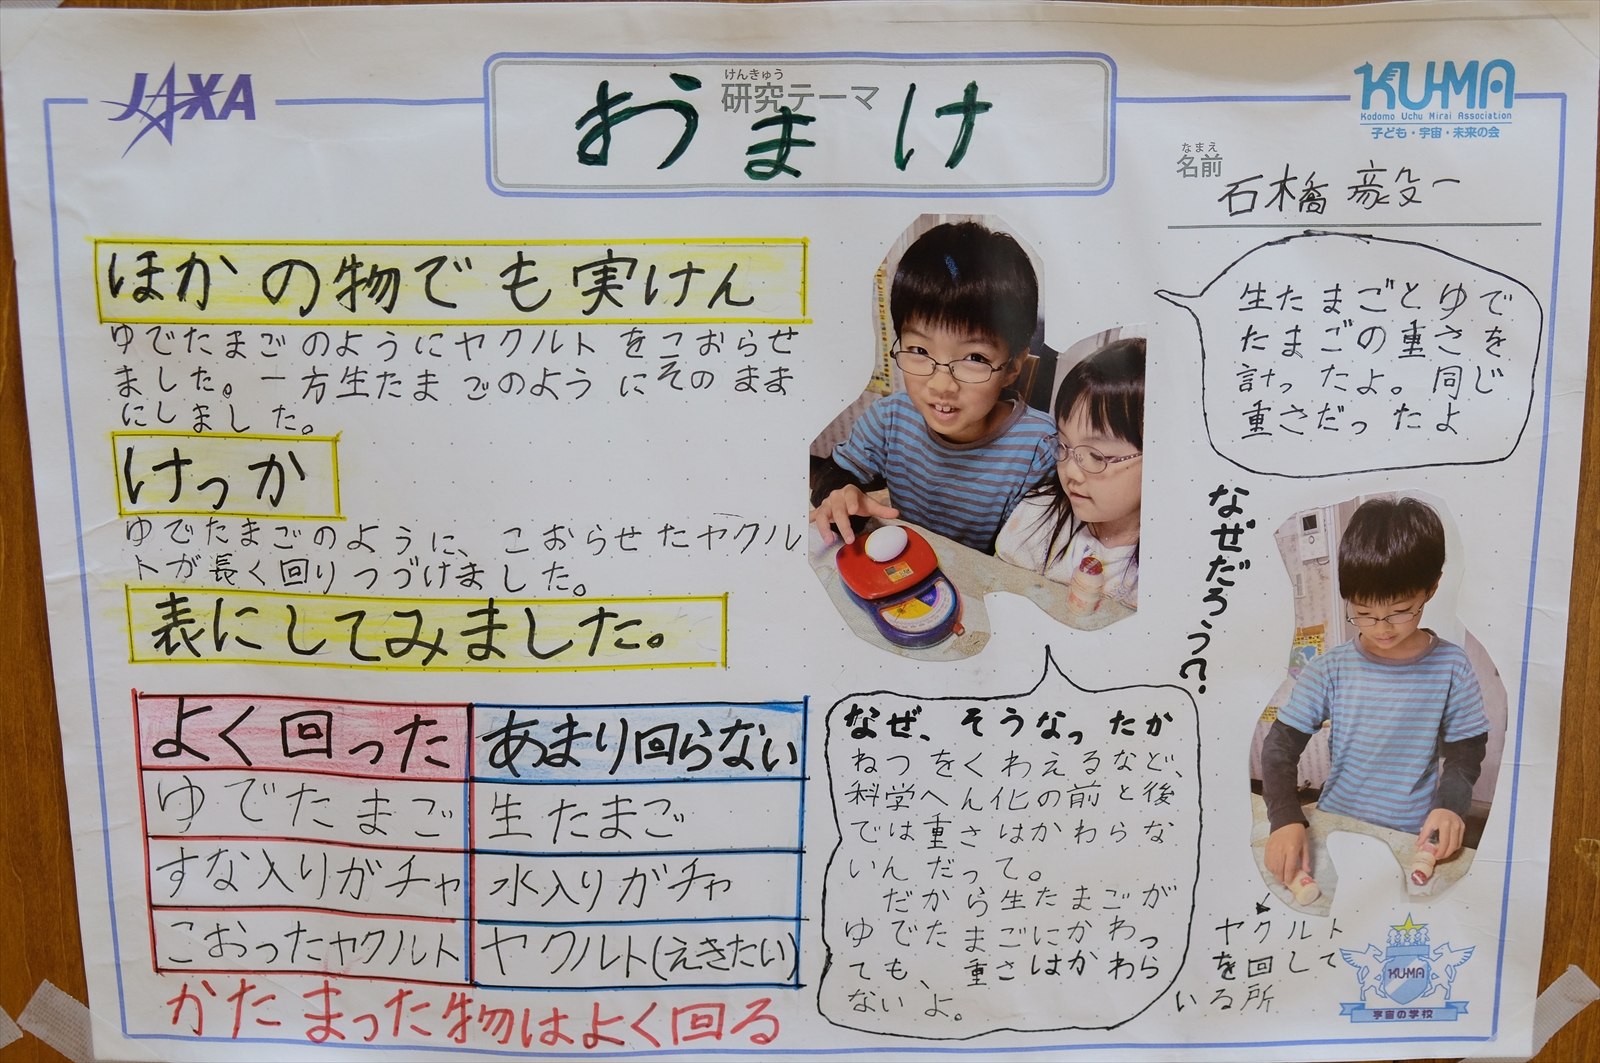 JAXA
けんきゅう
研究テーマ
おまけ
KU-MA
Kodomo Uchu Mirai Association
子ども・宇宙・未来の会
なまえ
名前
石橋 毅一
ほかの物でも実けん
ゆでたまごのようにヤクルトをこおらせ
ました。一方生たまごのようにそのまま
にしました。
けっか
ゆでたまごのように、こおらせたヤクル
トが長く回りつづけました。
表にしてみました。
よく回った あまり回らない
ゆでたまご 生たまご
すな入りガチャ 水入りガチャ
こおったヤクルト ヤクルト(えきたい)
かたまった物はよく回る
生たまごとゆで
たまごの重さを
計ったよ。同じ
重さだったよ
なぜだろう?
なぜ、そうなったか
ねつをくわえるなど、
科学へん化の前と後
では重さはかわらな
いんだって。
だから生たまごが
ゆでたまごにかわっ
ても、重さはかわら
ないよ。
ヤクルト
を回して
いる所
KUMA
宇宙の学校